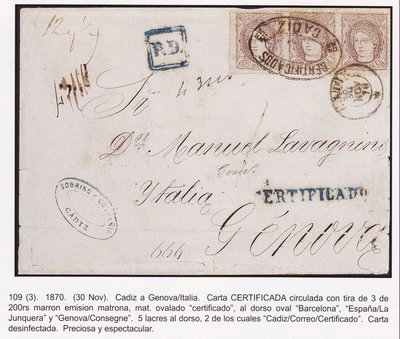 12 
P.D.
CERTIFICADOS
CADIZ
Sr
Dn Manuel Lavagnino
Italia
CERTIFICADO
Génova
SOBRINO Y
CADIZ
109 (3). 1870. (30 Nov). Cadiz a Genova/Italia. Carta CERTIFICADA circulada con tira de 3 de
200rs marron emision matrona, mat. ovalado "certificado", al dorso oval "Barcelona", "España/La
Junquera" y "Genova/Consegne". 5 lacres al dorso, 2 de los cuales "Cadiz/Correo/Certificado". Carta
desinfectada. Preciosa y espectacular.